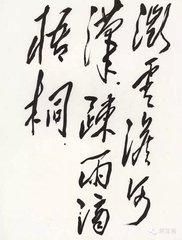 微雲澹河
漢疎雨滴
梧桐